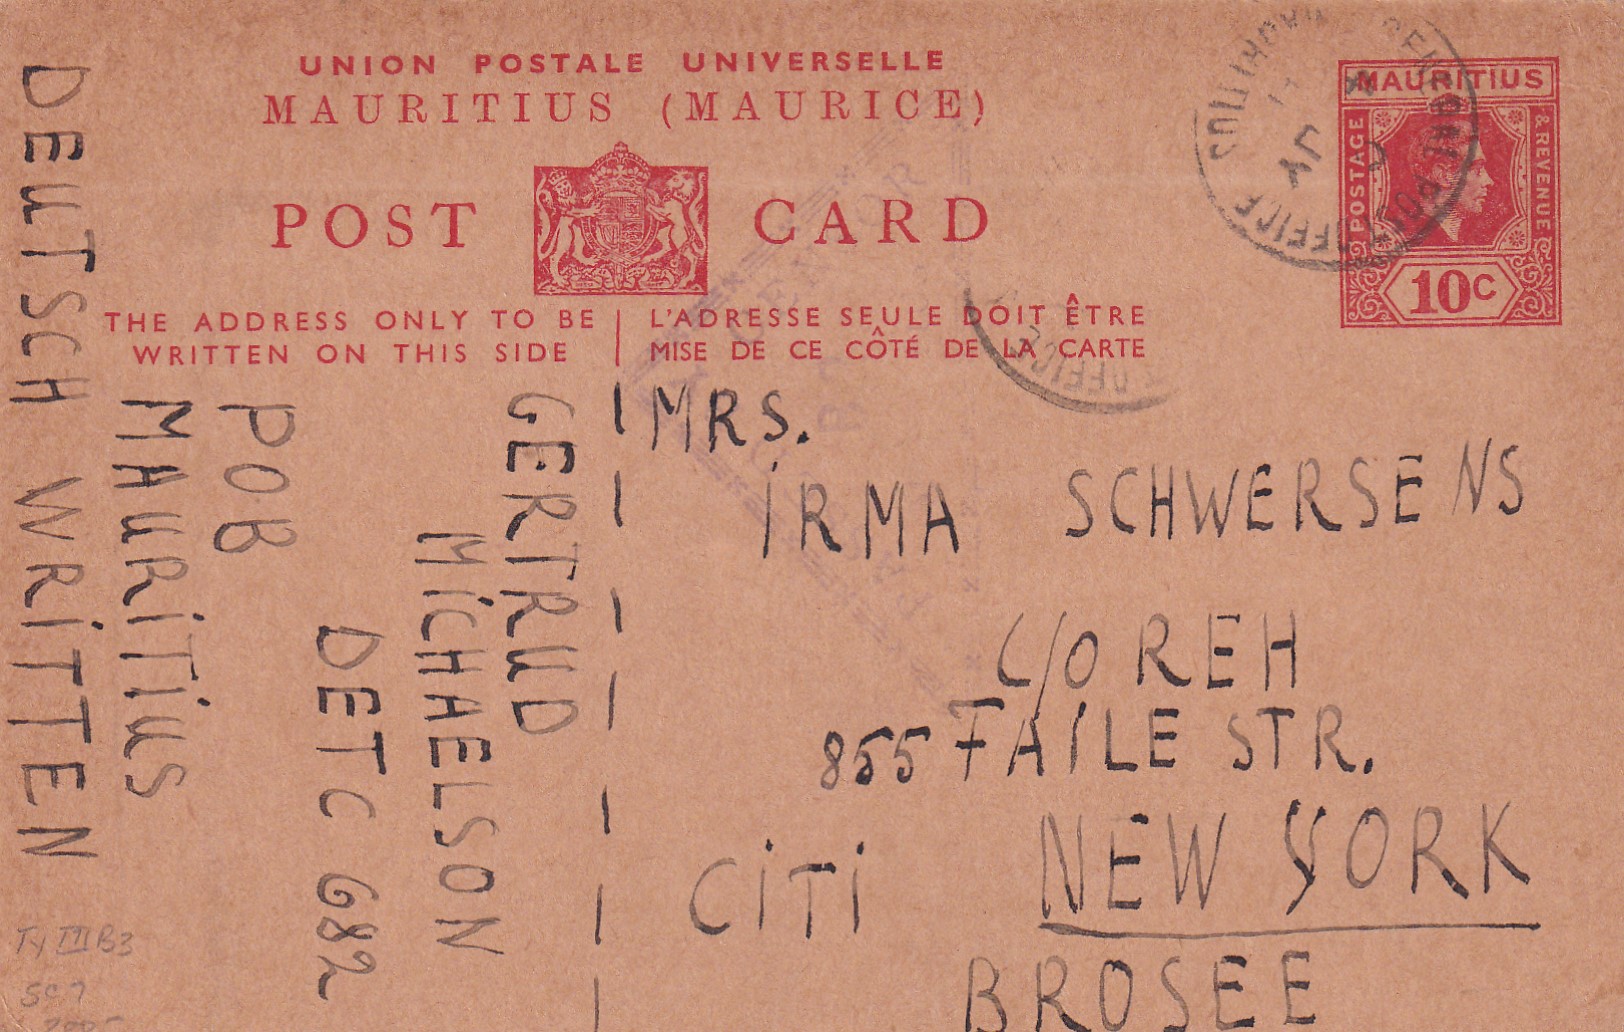 UNION POSTALE UNIVERSELLE
MAURITIUS (MAURICE)
POST CARD
THE ADDRESS ONLY TO BE
WRITTEN ON THIS SIDE
L'ADRESSE SEULE DOIT ÊTRE
MISE DE CE CÔTÉ DE LA CARTE
MAURITIUS
POSTAGE
& REVENUE
10C
POST OFFICE
MAURITIUS
OFFICE
CENSOR
MRS.
IRMA SCHWERSENS
C/O REH
855 FAILE STR.
NEW YORK
CITI
BROSEE
GERTRUD
MICHAELSON
DETC 682
POB
MAURITIUS
DEUTSCH WRITTEN
Ty III B3
SC7